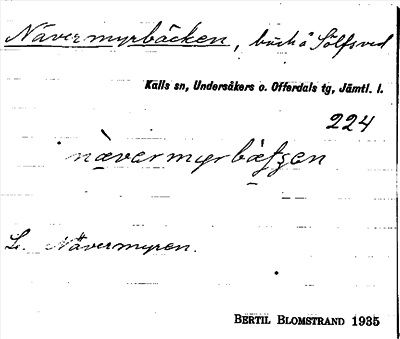 Nävermyrbäcken, bäck å Sölfsved
Kalls sn, Undersåkers o. Offerdals tg, Jämtl. l.
224
nävermyrbäʃʒen
L. Nävermyren.
BERTIL BLOMSTRAND 1935